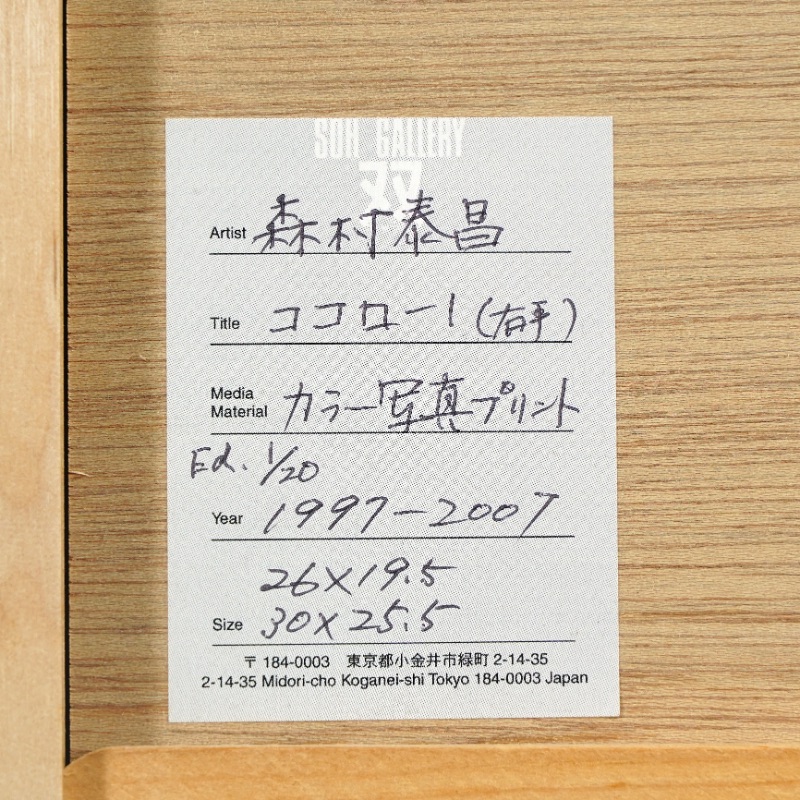 SOH GALLERY
双
Artist 森村泰昌
Title ココロー1 (右手)
Media Material カラー写真プリント
Ed. 1/20
Year 1997-2007
26×19.5
Size 30×25.5
〒 184-0003 東京都小金井市緑町 2-14-35
2-14-35 Midori-cho Koganei-shi Tokyo 184-0003 Japan